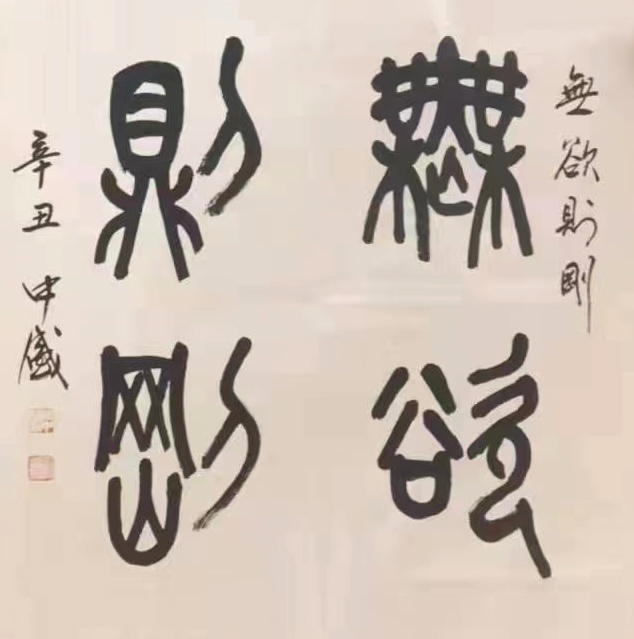 無欲則剛
無欲
則剛
辛丑